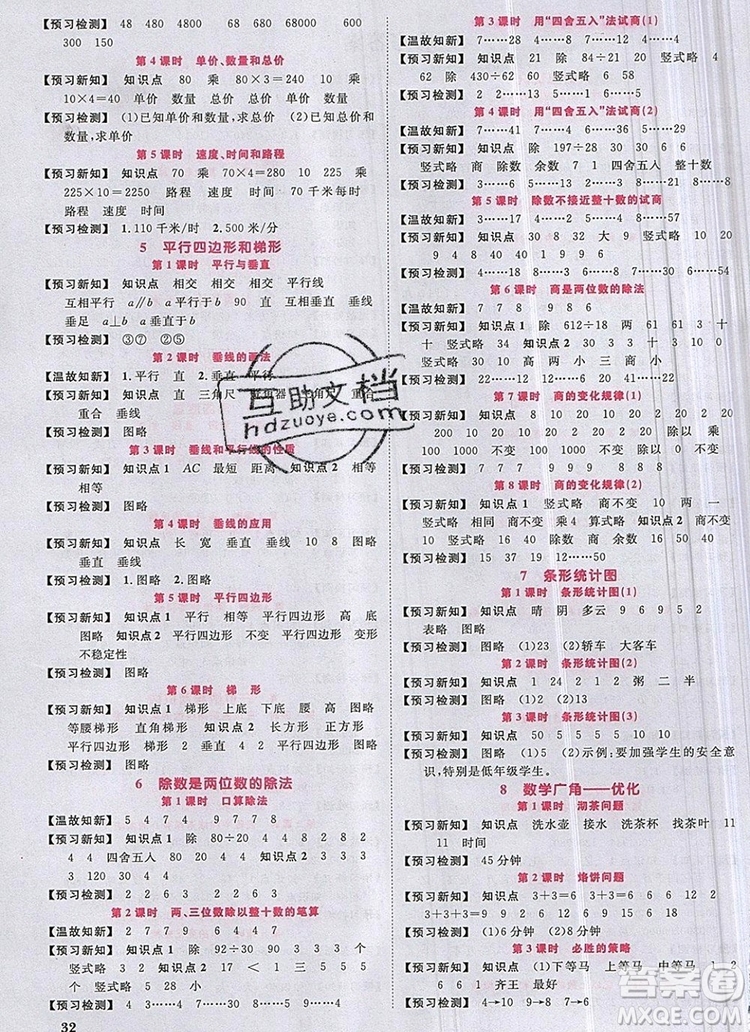 【预习检测】 48 68 48 60 680 6800 600
300 150
第4课时 单价、数量和总价
【预习新知】 知识点 80 乘 80×3=240 10 乘
10×4=40 单价 数量 总价 单价 数量 总价
【预习检测】 (1)已知单价和数量,求总价 (2)已知总价和
数量,求单价
第5课时 速度、时间和路程
【预习新知】 知识点 70 乘 70×4=280 225 乘
225×10=2250 路程 速度 时间 70 千米每时
路程 速度 时间
【预习检测】 1.110 千米/时 2.500 米/分
5 平行四边形和梯形
第1课时 平行与垂直
【预习新知】 知识点 相交 相交 相交 平行线
互相平行 a∥b a平行于b 90 互相垂直 垂线
垂足 a⊥b a垂直于b
【预习检测】 ③⑦ ②⑤
第2课时 垂线的画法
【温故知新】 1.平行 直 2.垂直 平行
【预习新知】 知识点 直 三角尺 量角器 三角尺 重合
重合 垂线
【预习检测】 图略
第3课时 垂线和平行线的性质
【预习新知】 知识点1 AC 最短 距离 知识点2 相等
相等
【预习检测】 图略
第4课时 垂线的应用
【预习新知】 知识点 长 宽 垂直 垂直 10 8 图略
垂直
【预习检测】 1.图略 2.图略
第5课时 平行四边形
【预习新知】 知识点1 平行 相等 平行四边形 高 底
图略 知识点2 平行四边形 不变 平行四边形 变形
不稳定性
【预习检测】 图略
第6课时 梯 形
【预习新知】 知识点1 梯形 上底 下底 腰 高 相等
等腰梯形 直角梯形 知识点2 长方形 正方形
平行四边形 梯形 2 垂直 平行四边形
【预习检测】 图略
6 除数是两位数的除法
第1课时 口算除法
【温故知新】 5 4 7 4 9 7 7 8
【预习新知】 知识点1 除 80÷20 4 4 8 8
4 4 4 四舍五人 80 4 80 4 知识点2 3 3
【预习检测】 4 4 4 6 6 6
第2课时 两、三位数除以整十数的笔算
【温故知新】 2 7 7 7 6 4 4 7
【预习新知】 知识点1 除 92÷30 3 个 3 3 个
竖式略 知识点2 17 < 1 3 5 竖式略
竖式略 5 28 小
【预习检测】 4 3……4 7……30 9……40 4
32
第3课时 用“四舍五入”法试商(1)
【温故知新】 7……8 6……28 6……4 6……27
【预习新知】 知识点 除 84÷21 20 4 竖式略 4
62 除 430÷62 60 竖式略 6 60 6 58
【预习检测】 2……3 4……2 8……37 7……9
第4课时 用“四舍五入”法试商(2)
【温故知新】 7……41 7……6 4……36 7……17
【预习新知】 知识点 除 197÷28 30 6 10 7
竖式略 商 除数 余数 1 7 四舍五入 小 1
【预习检测】 3……6 5……13 3……17 8……12
第5课时 除数不接近整十数的试商
【温故知新】 3……27 4……54 3……29 4……53
【预习新知】 知识点 30 8 32 大 9 竖式略 30
9 竖式略
【预习检测】 4……18 8……8 9……13 6……18
第6课时 商是两位数的除法
【温故知新】 7 7 8 9 8 6
【预习新知】 知识点1 除 612÷18 两 61 3 十
十 竖式略 34 知识点2 94 3 十 10 3
竖式略 30 10 两 小 三 商 小
【预习检测】 22……12 12……60 6……41
第7课时 商的变化规律(1)
【预习新知】 知识点1 2 20 200 10 10 100
100 乘几 知识点2 200 20 2 10 100
除以几 100 100 1000 除以 0 不变
【预习检测】 7 7 7 9 999 8 88 888
第8课时 商的变化规律(2)
【预习新知】 知识点1 竖式略 商不变 2 0 0 一
竖式略 相同 商不变 乘4 算式略 知识点2 7
竖式略 8 60 除数 商 余数 8 60 840
【预习检测】 15 37 19 12……50
7 条形统计图
第1课时 条形统计图(1)
【预习新知】 知识点 晴 阴 多云 9 6 7 6 3
表略 图略
【预习检测】 图略 (1)23 (2)轿车 大客车
第2课时 条形统计图(2)
【预习新知】 知识点 2 图略 2 粥 2 二 半
【预习检测】 图略
第3课时 条形统计图(3)
【预习新知】 知识点 50 5 5 5 10 图略
【预习检测】 图略 (1)5 (2)示例:要加强安全意
识,特别是低年级学生。
8 数学广角——优化
第1课时 沏茶问题
【预习新知】 知识点 洗水壶 接水 洗茶杯 找茶叶 11
11 时间
【预习检测】 45 分钟
第2课时 烙饼问题
【预习新知】 知识点 3+3=6 6 3+3+3=9
3+6=9 9 2 3
【预习检测】 (1)6分钟 (2)9分钟
第3课时 必胜的策略
【预习新知】 知识点 (1)下等马 上等马 中等马 1 2
6 6 1 齐王 最好
【预习检测】 4→10 9→8 6→7
互助文档
hdzuoye.com
答案圈
MXQE.COM